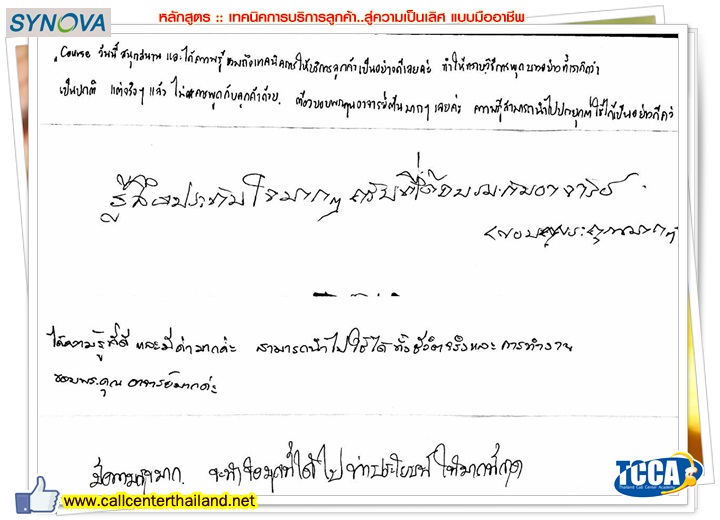 SYNOVA
หลักสูตร :: เทคนิคการบริการลูกค้า..สู่ความเป็นเลิศ แบบมืออาชีพ
Course วันนี้ สนุกสนาน และได้ความรู้ รวมถึงเทคนิคการให้บริการลูกค้าเป็นอย่างดีเลยค่ะ ทำให้ทราบวิธีการพูด บางอย่างที่เราคิดว่า
เป็นปกติ แต่จริงๆ แล้ว ไม่ควรพูดกับลูกค้าด้วย. ต้องขอบพระคุณอาจารย์ มากๆ เลยค่ะ ความรู้สามารถนำไปประยุกต์ใช้ได้เป็นอย่างดี
รู้สึกประทับใจมากๆ ครับที่ได้อบรมกับอาจารย์
ขอบคุณพระคุณมากครับ
ได้ความรู้ที่ดี และมีค่ามากค่ะ สามารถนำไปใช้ได้ ทั้งชีวิตจริงและการทำงาน
ขอบพระคุณ อาจารย์มากค่ะ
มีความสุขมาก. จะนำข้อมูลที่ได้ไป ทำประโยชน์ ให้มากที่สุด
TCCA
Thailand Call Center Academy
www.callcenterthailand.net